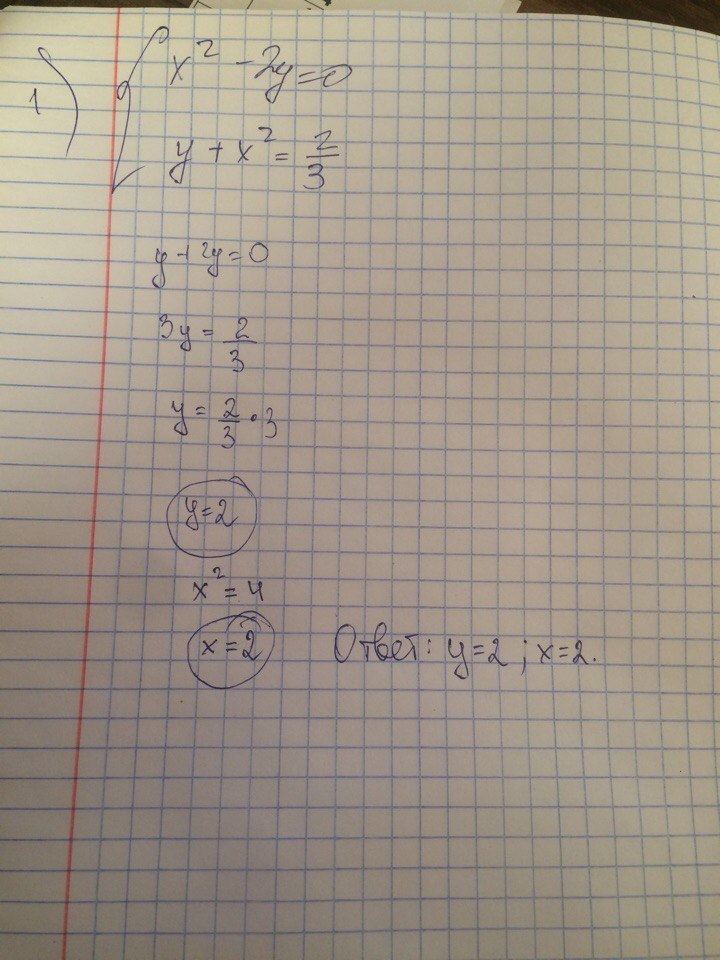 1) { x² - 2y = 0
y + x² = 2/3
y + 2y = 0
3y = 2/3
y = 2/3 · 3
y = 2
x² = 4
x = 2
Ответ: y = 2 ; x = 2.